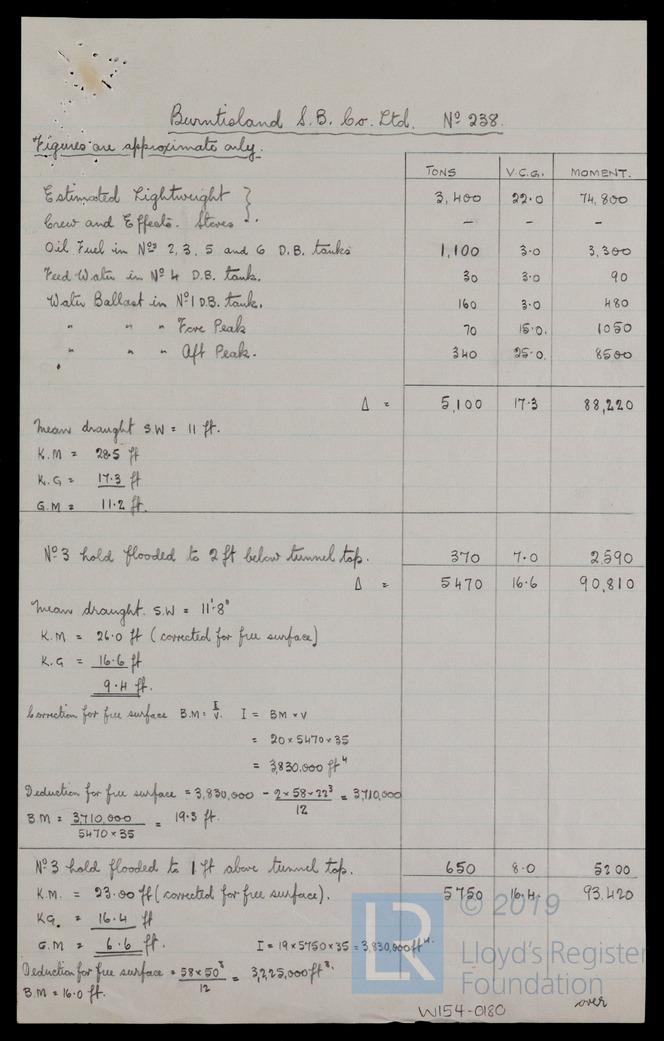 Burntisland S.B. Co. Ltd. Nº 238.
Figures are approximate only.
TONS V.C.G. MOMENT.
Estimated Lightweight } 3,400 22.0 74,800
Crew and Effects. Stores - - -
Oil Fuel in Nºs 2, 3, 5 and 6 D.B. tanks 1,100 3.0 3,300
Feed Water in Nº 4 D.B. tank. 30 3.0 90
Water Ballast in Nº 1 D.B. tank. 160 3.0 480
" " " Fore Peak 70 15.0. 1050
" " " Aft Peak. 340 25.0. 8500
Δ = 5,100 17.3 88,220
Mean draught S.W = 11 ft.
K.M = 28.5 ft
K.G = 17.3 ft
G.M = 11.2 ft.
Nº 3 hold flooded to 2 ft below tunnel top. 370 7.0 2,590
Δ = 5470 16.6 90,810
Mean draught. S.W = 11'-8"
K.M = 26.0 ft (corrected for free surface)
K.G = 16.6 ft
9.4 ft.
Correction for free surface B.M = I/V. I = BM × V
= 20 × 5470 × 35
= 3,830,000 ft⁴
Deduction for free surface = 3,830,000 - 2 × 58 × 22³/12 = 3,710,000
B.M = 3,710,000/5470 × 35 = 19.3 ft.
Nº 3 hold flooded to 1 ft above tunnel top. 650 8.0 5200
K.M. = 23.00 ft (corrected for free surface). 5750 16.4 93,420
KG. = 16.4 ft
G.M = 6.6 ft. I = 19 × 5750 × 35 = 3,830,000 ft⁴.
Deduction for free surface = 58 × 50³/12 = 3,225,000 ft³.
B.M = 16.0 ft.
over
W154-0180
© 2019
LR
Lloyd's Register
Foundation